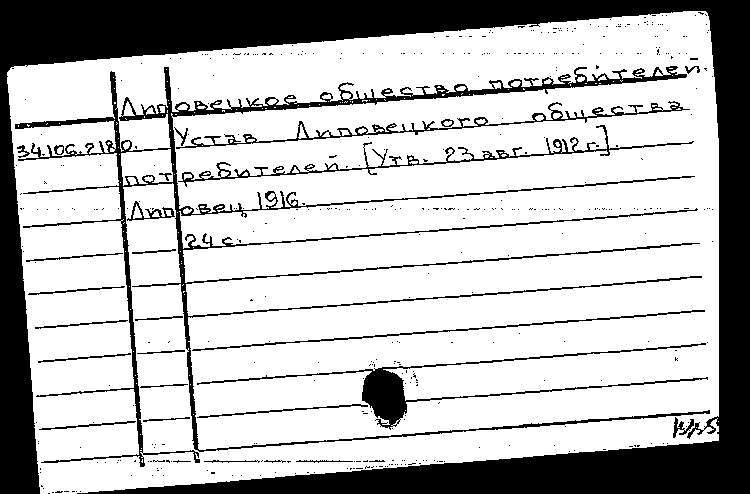 Липовецкое общество потребителей.
34.106.2180. Устав Липовецкого общества
потребителей. [Утв. 23 авг. 1912 г.].
Липовец, 1916.
24 с.